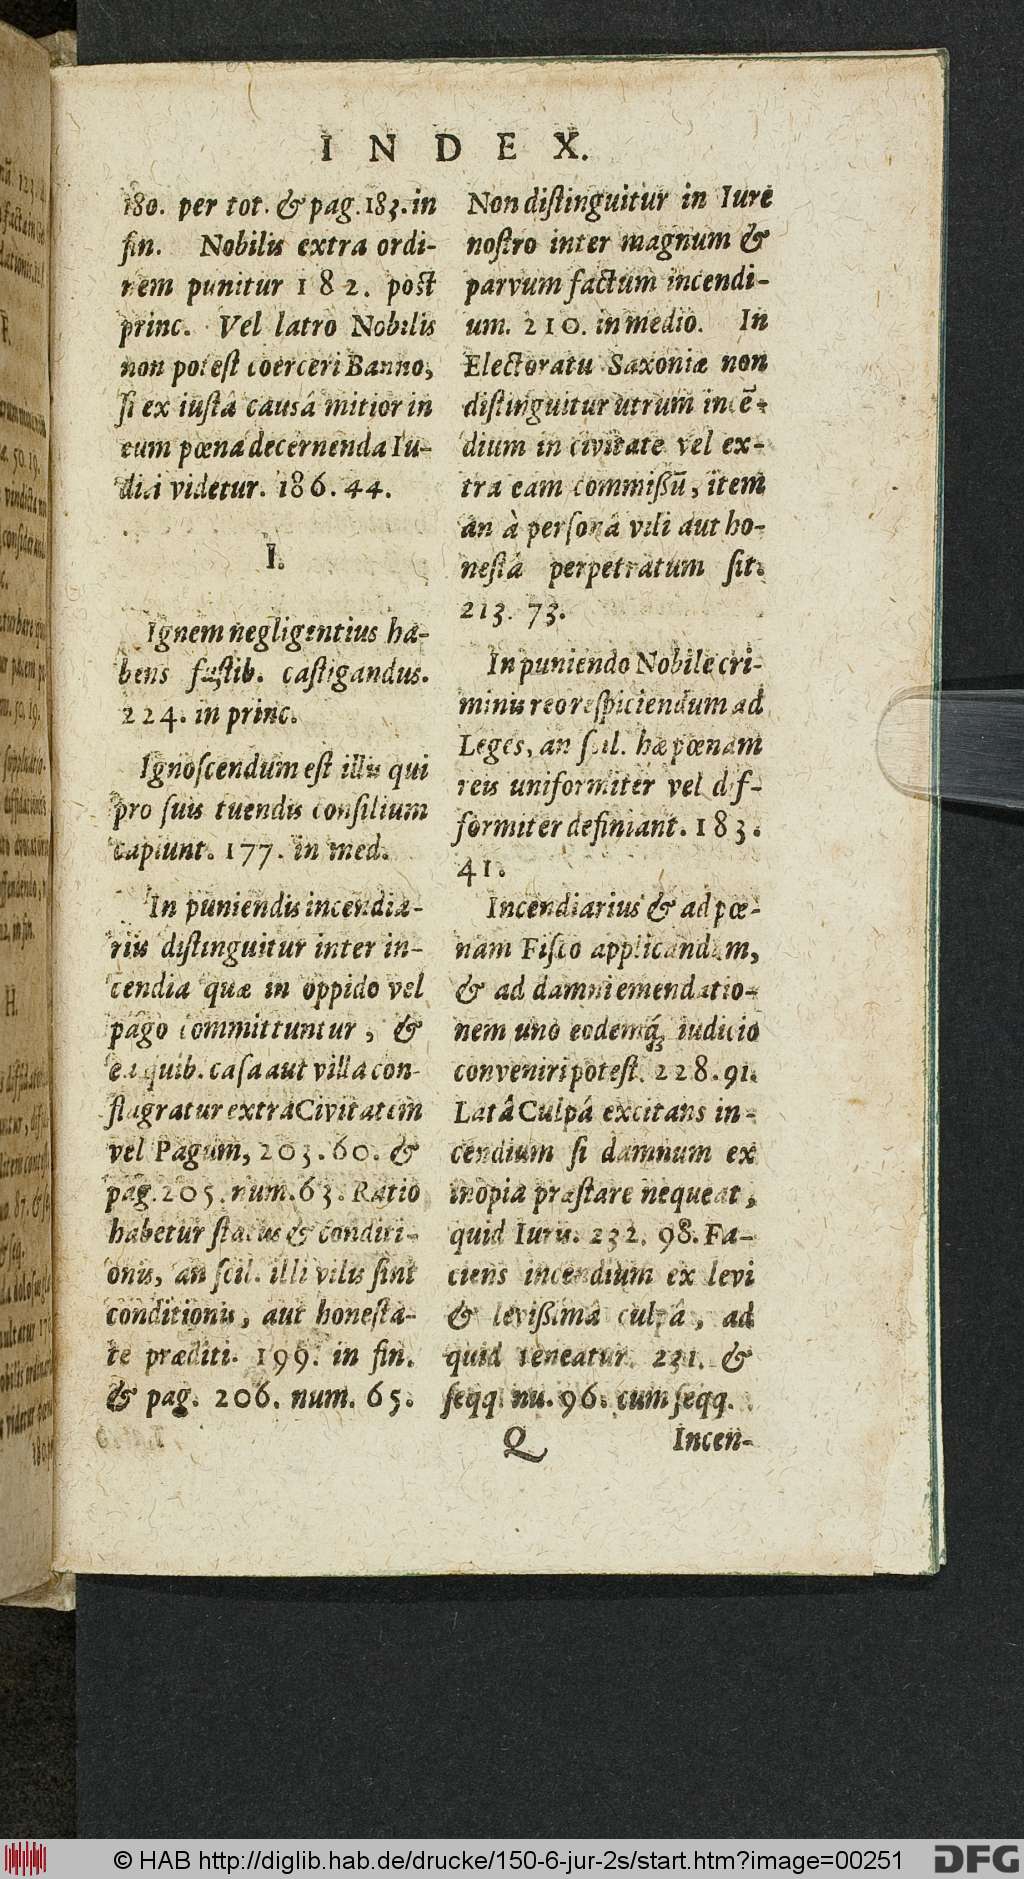 INDEX.
180. per tot. & pag. 183. in
fin. Nobilis extra ordi-
nem punitur 182. post
princ. Vel latro Nobilis
non potest coerceri Banno,
si ex iustâ causâ mitior in
eum pœna decernenda Iu-
dici videtur. 186. 44.
I.
Ignem negligentius ha-
bens fustib. castigandus.
224. in princ.
Ignoscendum est illis qui
pro suis tuendis consilium
capiunt. 177. in med.
In puniendis incendia-
riis distinguitur inter in-
cendia quæ in oppido vel
pago committuntur, &
ea quib. casa aut villa con-
flagratur extra Civitatem
vel Pagum, 203. 60. &
pag. 205. num. 63. Ratio
habetur status & conditi-
onis, an scil. illi vilis sint
conditionis, aut honesta-
te præditi. 199. in fin.
& pag. 206. num. 65.
Non distinguitur in Iure
nostro inter magnum &
parvum factum incendi-
um. 210. in medio. In
Electoratu Saxoniæ non
distinguitur utrum incē-
dium in civitate vel ex-
tra eam commißū, item
an à personâ vili aut ho-
nestâ perpetratum sit.
213. 73.
In puniendo Nobile cri-
minis reo respiciendum ad
Leges, an scil. hæ pœnam
reis uniformiter vel dif-
formiter definiant. 183.
41.
Incendiarius & ad pœ-
nam Fisco applicandam,
& ad damni emendatio-
nem uno eodemq́; iudicio
conveniri potest. 228. 91.
Latâ Culpâ excitans in-
cendium si damnum ex
inopia præstare nequeat,
quid Iuris. 232. 98. Fa-
ciens incendium ex levi
& levißima culpâ, ad
quid teneatur. 231. &
seqq. nu. 96. cum seqq.
Q Incen-
© HAB http://diglib.hab.de/drucke/150-6-jur-2s/start.htm?image=00251
DFG